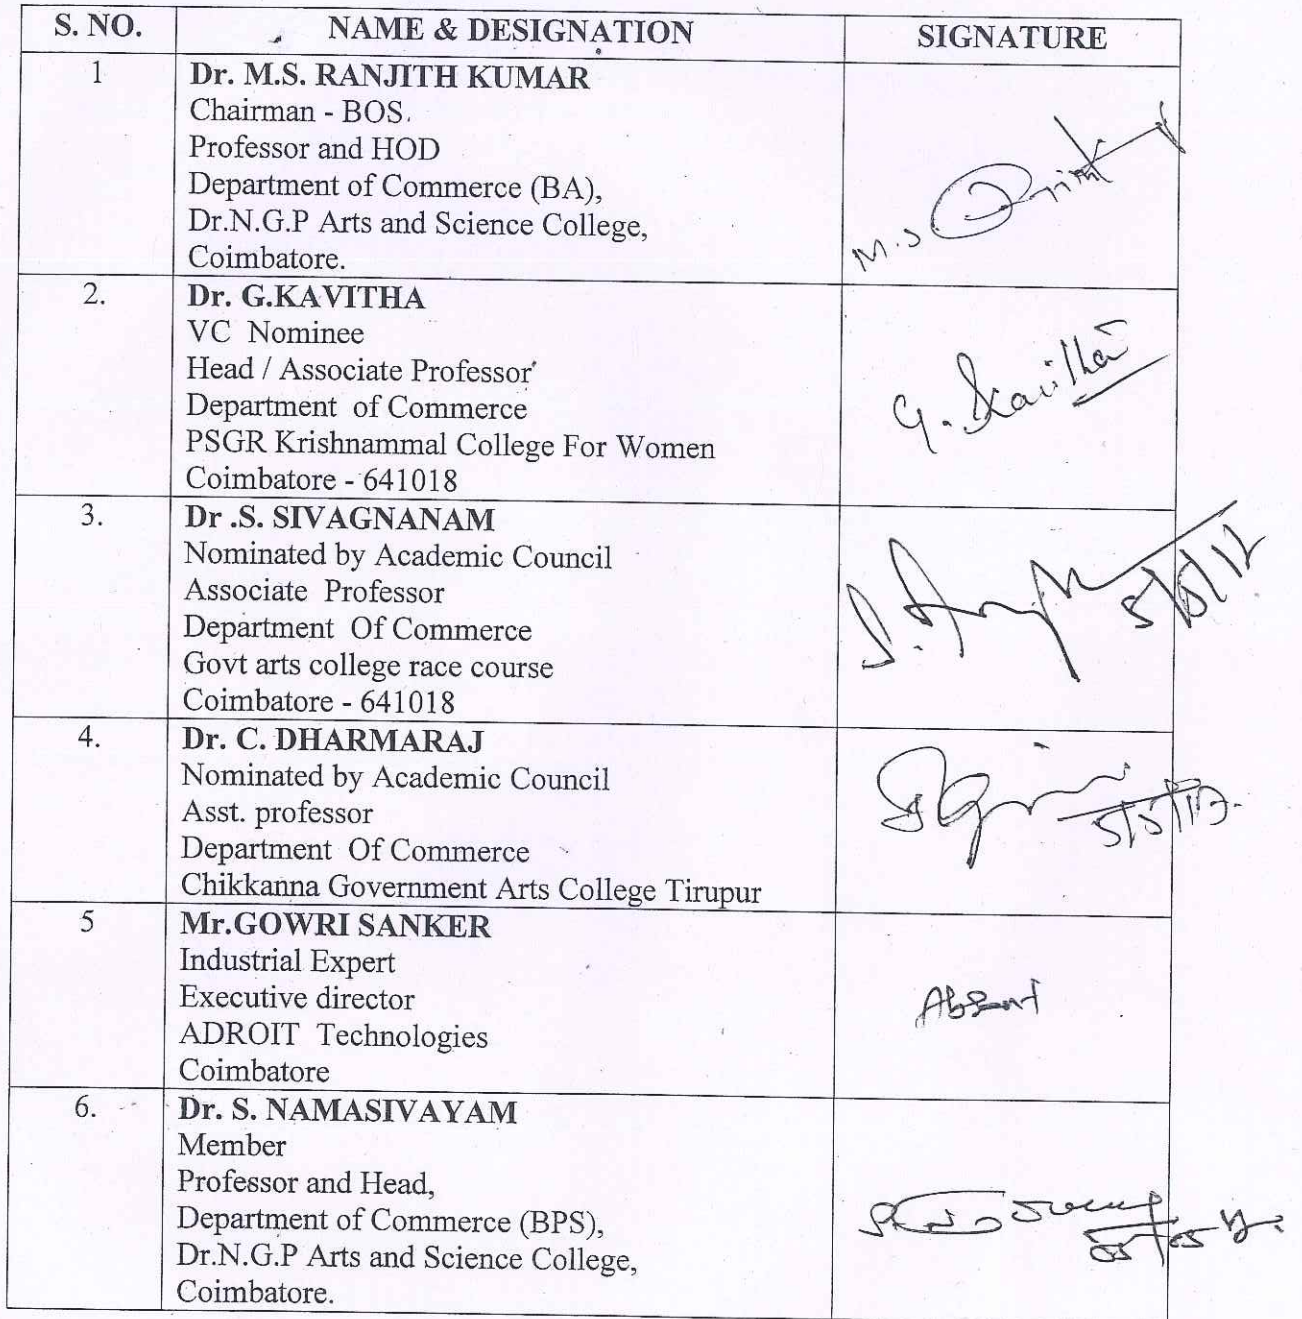 S. NO. NAME & DESIGNATION SIGNATURE
1 Dr. M.S. RANJITH KUMAR
Chairman - BOS.
Professor and HOD
Department of Commerce (BA),
Dr.N.G.P Arts and Science College,
Coimbatore.
M.S
2. Dr. G.KAVITHA
VC Nominee
Head / Associate Professor
Department of Commerce
PSGR Krishnammal College For Women
Coimbatore - 641018
G. Kavitha
3. Dr .S. SIVAGNANAM
Nominated by Academic Council
Associate Professor
Department Of Commerce
Govt arts college race course
Coimbatore - 641018
4. Dr. C. DHARMARAJ
Nominated by Academic Council
Asst. professor
Department Of Commerce
Chikkanna Government Arts College Tirupur
5/5/17.
5 Mr.GOWRI SANKER
Industrial Expert
Executive director
ADROIT Technologies
Coimbatore
Absent
6. Dr. S. NAMASIVAYAM
Member
Professor and Head,
Department of Commerce (BPS),
Dr.N.G.P Arts and Science College,
Coimbatore.